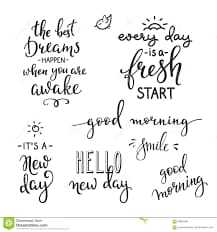 the best
Dreams
- HAPPEN -
when you are
awake
every day
- is a -
fresh
START
good morning
smile
IT'S A
New
day
HELLO
new day
good
morning